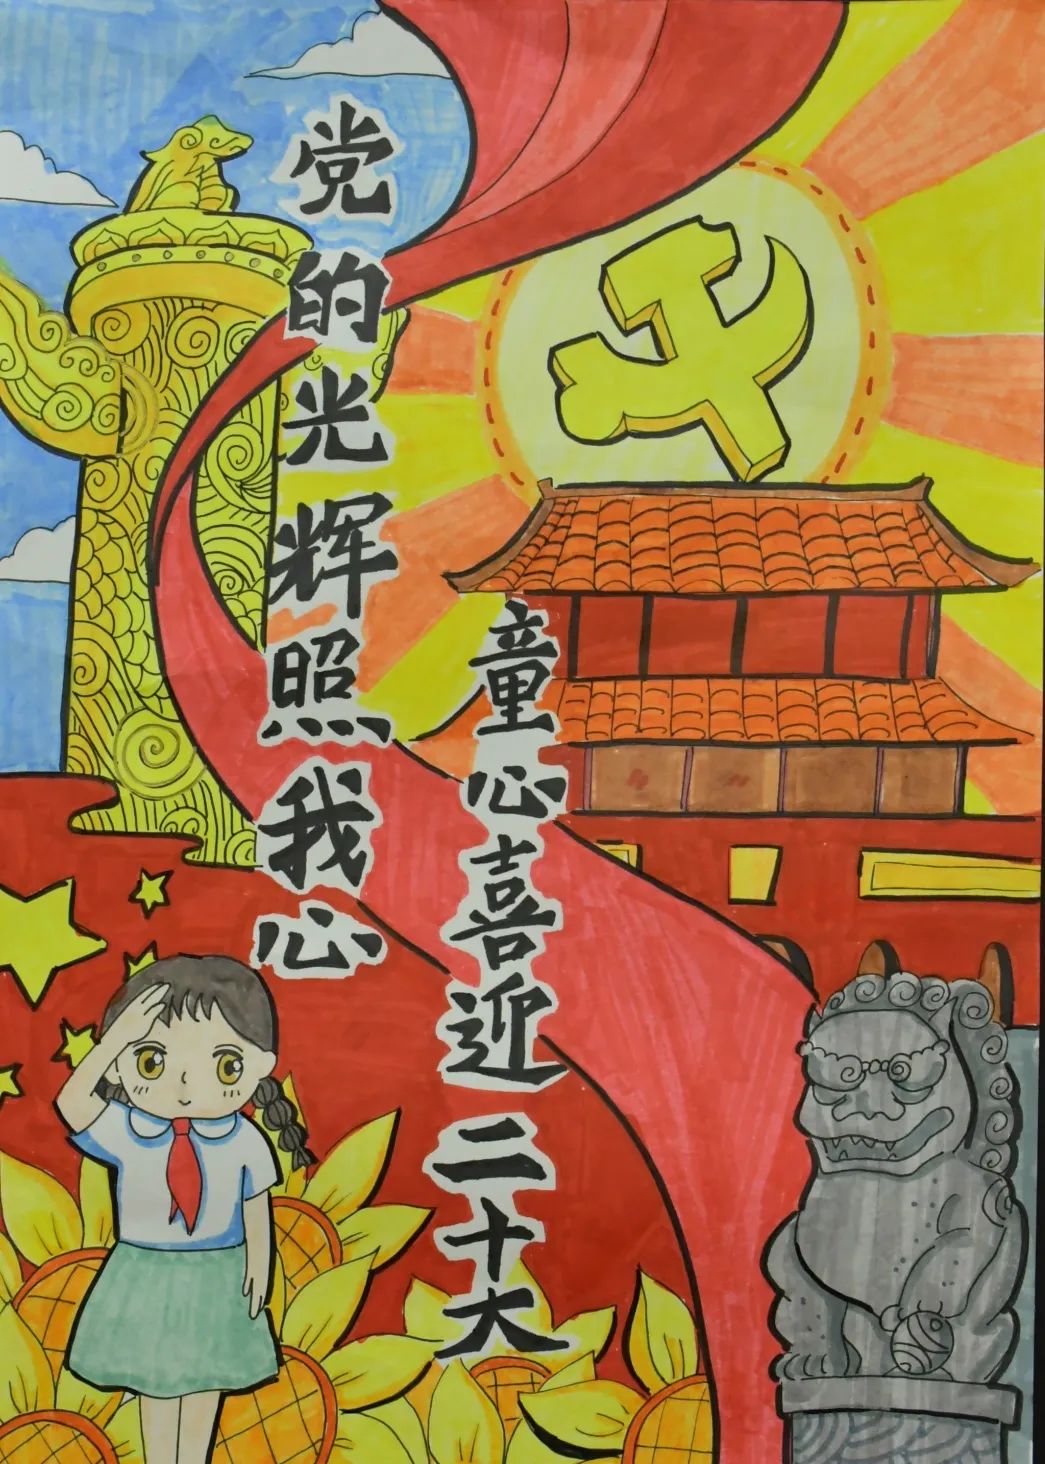 党的光辉照我心
童心喜迎二十大